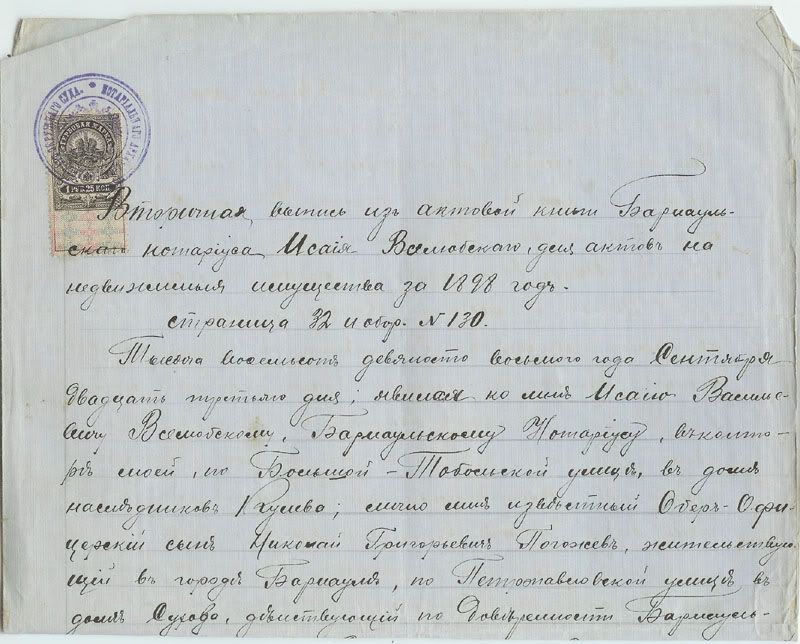 НОТАРІАЛЬНАГО
СУДА.
ГЕРБОВАЯ МАРКА
1 РУБ. 25 КОП.
Вторичная выпись изъ актовой книги Барнауль-
скаго нотаріуса Исаія Вселюбскаго, для актовъ на
недвижимыя имущества за 1898 годъ.
страница 32 и обор. N 130.
Тысяча восемьсотъ девяносто восьмого года Сентября
двадцать третьяго дня; явился ко мнѣ Исаію Василье-
вичу Вселюбскому, Барнаульскому Нотаріусу, въ конто-
рѣ моей, по Большой-Тобольской улицѣ, въ домѣ
наслѣдниковъ; лично мнѣ извѣстный Оберъ-Офи-
церскій сынъ Николай Григорьевичъ Погожевъ, жительствую-
щій въ городѣ Барнаулѣ, по Петропавловской улицѣ въ
домѣ Сухова, дѣйствующій по довѣренности Барнауль-